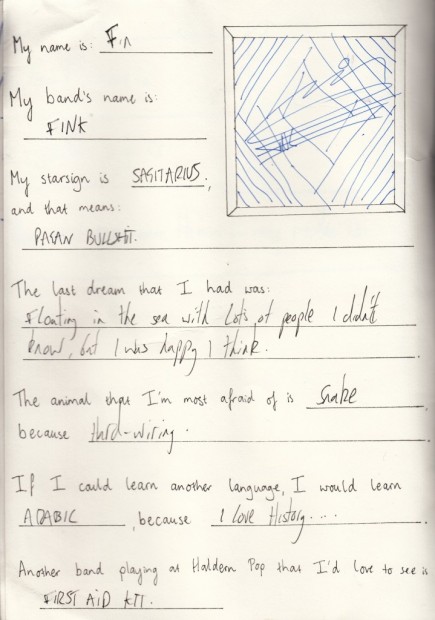 My name is: Fin
My band's name is:
FINK
My starsign is SAGITARIUS,
and that means:
PAGAN BULLSHIT.
The last dream that I had was:
Floating in the sea with lots of people I didn't
know, but I was happy I think.
The animal that I'm most afraid of is Snake,
because Hard-wiring.
If I could learn another language, I would learn
ARABIC, because I love History....
Another band playing at Haldern Pop that I'd love to see is
FIRST AID KIT.